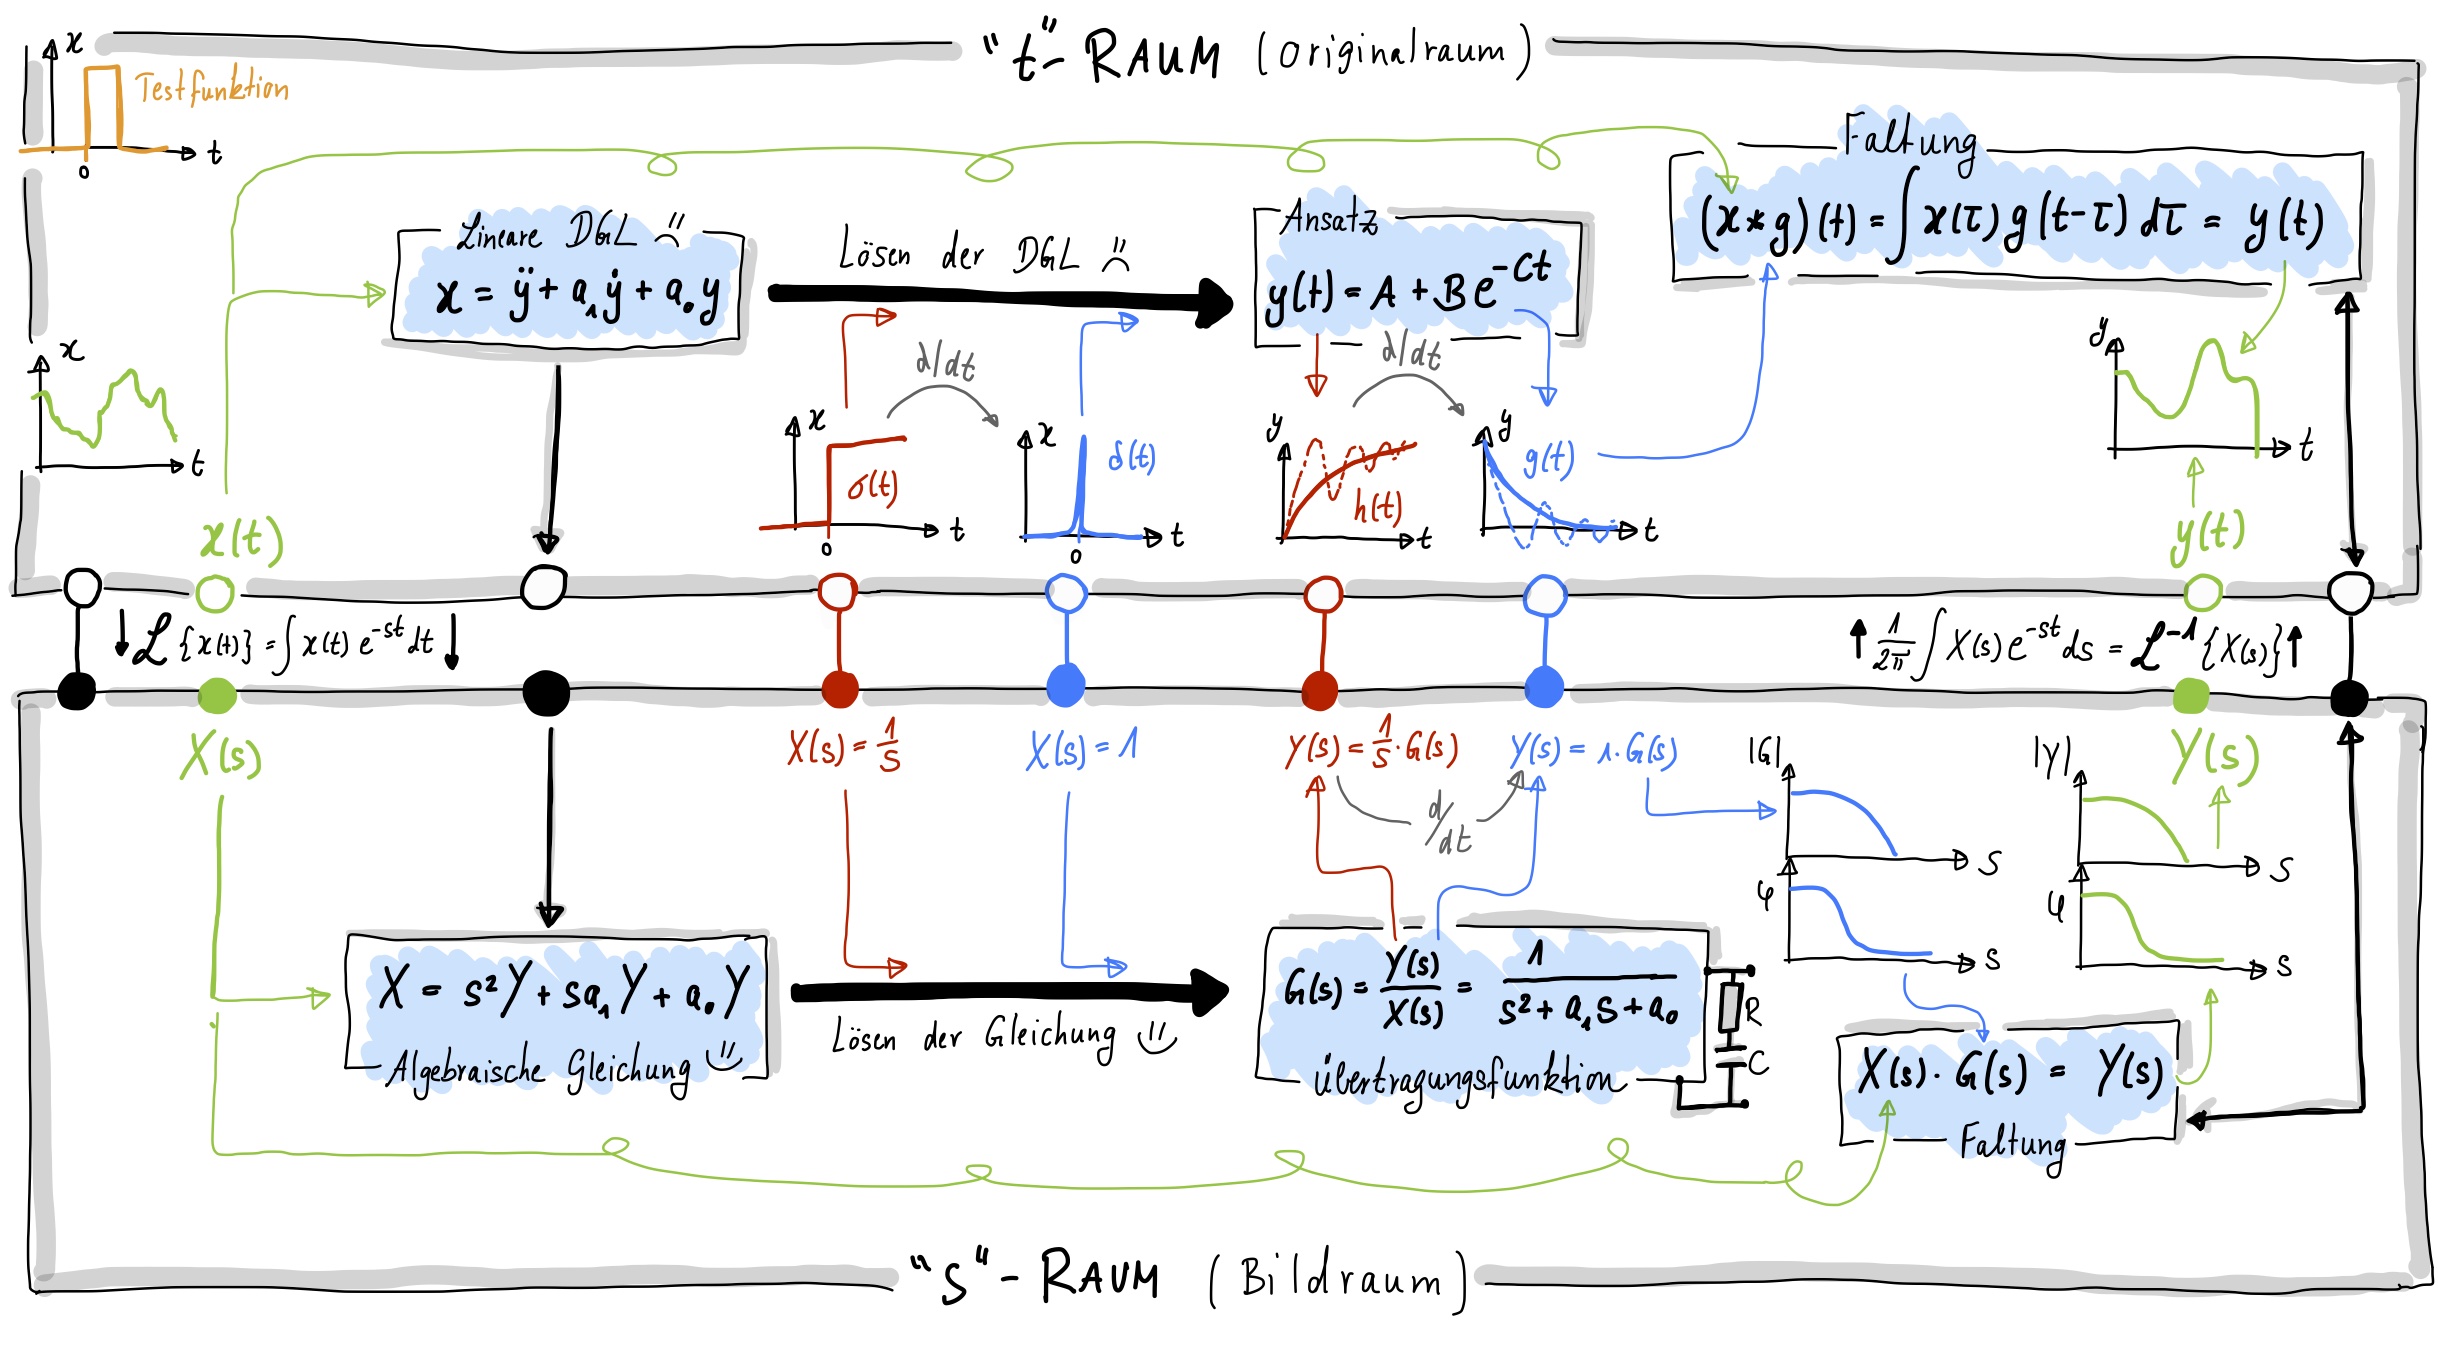 "t"-RAUM (Originalraum)
x
Testfunktion
t
0
Faltung
(x*g)(t) = ∫x(τ)g(t-τ)dτ = y(t)
Lineare DGL
x = ÿ + a₁ẏ + a₀y
Lösen der DGL
Ansatz
y(t) = A + Be^-Ct
d/dt
d/dt
x
t
x
σ(t)
t
0
x
δ(t)
t
0
y
h(t)
t
y
g(t)
t
y
t
x(t)
y(t)
↓ ℒ{x(t)} = ∫x(t) e^-st dt ↓
↑ 1/2π ∫X(s)e^-st ds = ℒ^-1{X(s)} ↑
X(s)
X(s) = 1/s
X(s) = 1
Y(s) = 1/s · G(s)
Y(s) = 1 · G(s)
d/dt
|G|
s
φ
s
|Y|
s
φ
s
Y(s)
X = s²Y + sa₁Y + a₀Y
Algebraische Gleichung
Lösen der Gleichung
G(s) = Y(s)/X(s) = 1/(s² + a₁s + a₀)
Übertragungsfunktion
R
C
X(s) · G(s) = Y(s)
Faltung
"s"-RAUM (Bildraum)